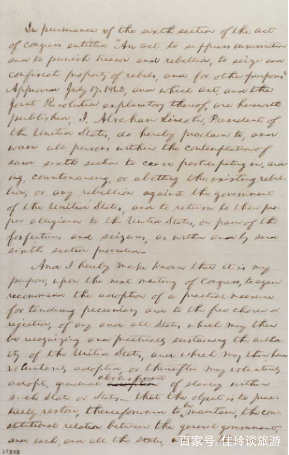 In pursuance of the sixth section of the act
of congress entitled "An act to suppress insurrection
and to punish treason and rebellion, to seize and
confiscate property of rebels, and for other purposes"
Approved July 17, 1862, and which act, and the
Joint Resolution explanatory thereof, are herewith
published, I, Abraham Lincoln, President of
the United States, do hereby proclaim to, and
warn all persons within the contemplation of
said sixth section to cease participating in, aid-
ing, countenancing, or abetting the existing rebel-
lion, or any rebellion against the government
of the United States, and to return to their pro-
per allegiance to the United States, on pain of the
forfeitures and seizures, as within and by said
sixth section provided.
And I hereby make known that it is my
purpose, upon the next meeting of Congress, to again
recommend the adoption of a practical measure
for tendering pecuniary aid to the free choice or
rejection, of any and all States which may then
be recognizing and practically sustaining the author-
ity of the United States, and which may then have
voluntarily adopted, or thereafter may voluntarily
adopt, gradual abolishment of slavery within
such State or States—that the object is to prac-
tically restore, thenceforward to maintain, the con-
stitutional relation between the general government,
and each, and all the states,
百家号·佳玲谈旅游